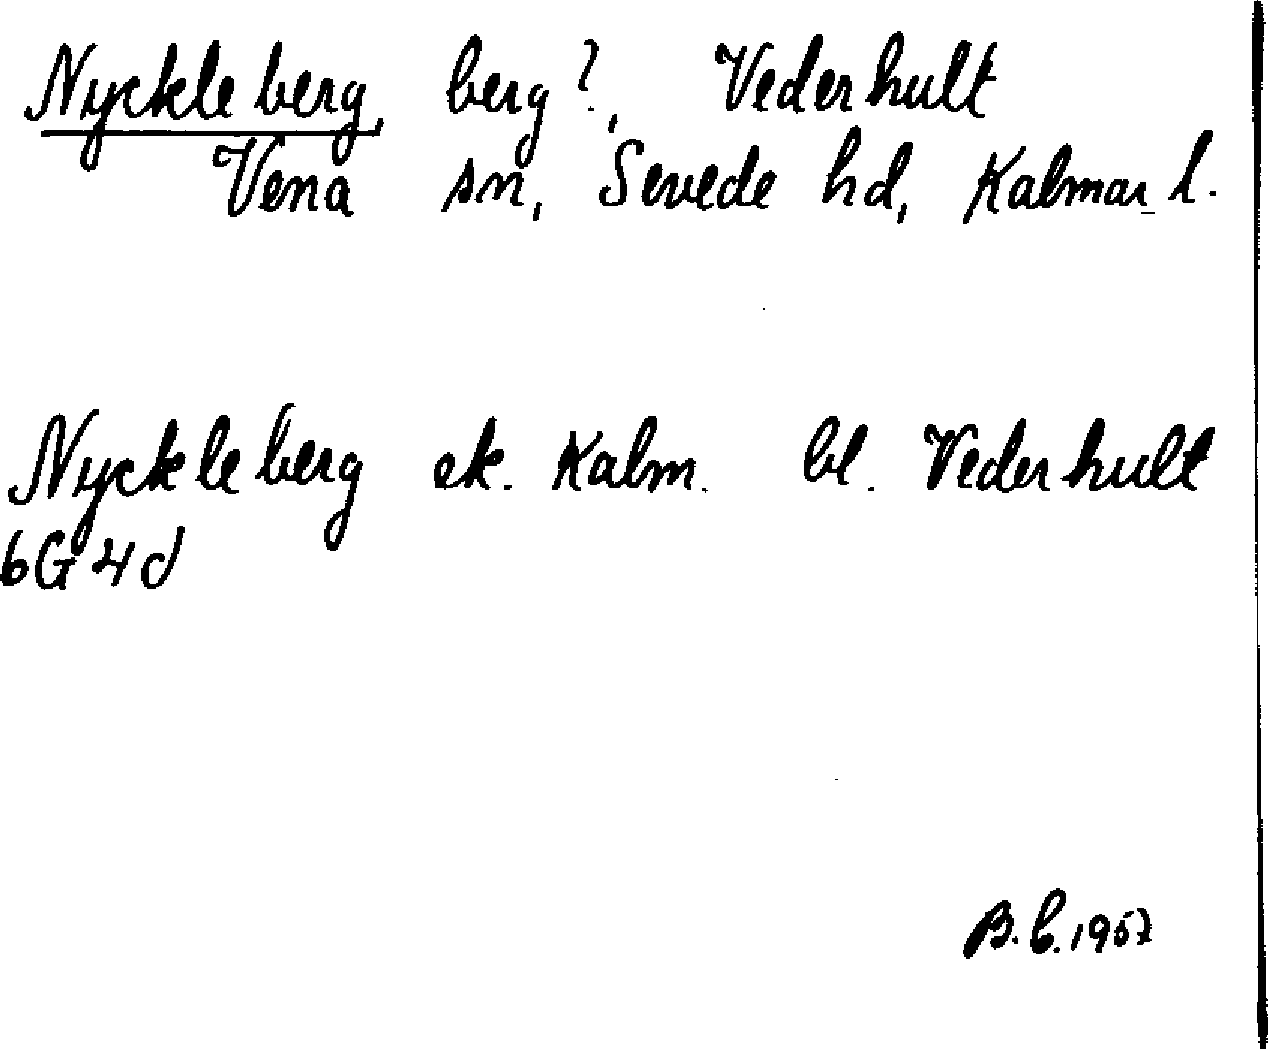 Nyckleberg, berg?, Vederhult
Vena sn, Sevede hd, Kalmar l.
Nyckleberg ek. Kalm. bl. Vederhult
6G4d
B.C. 1967